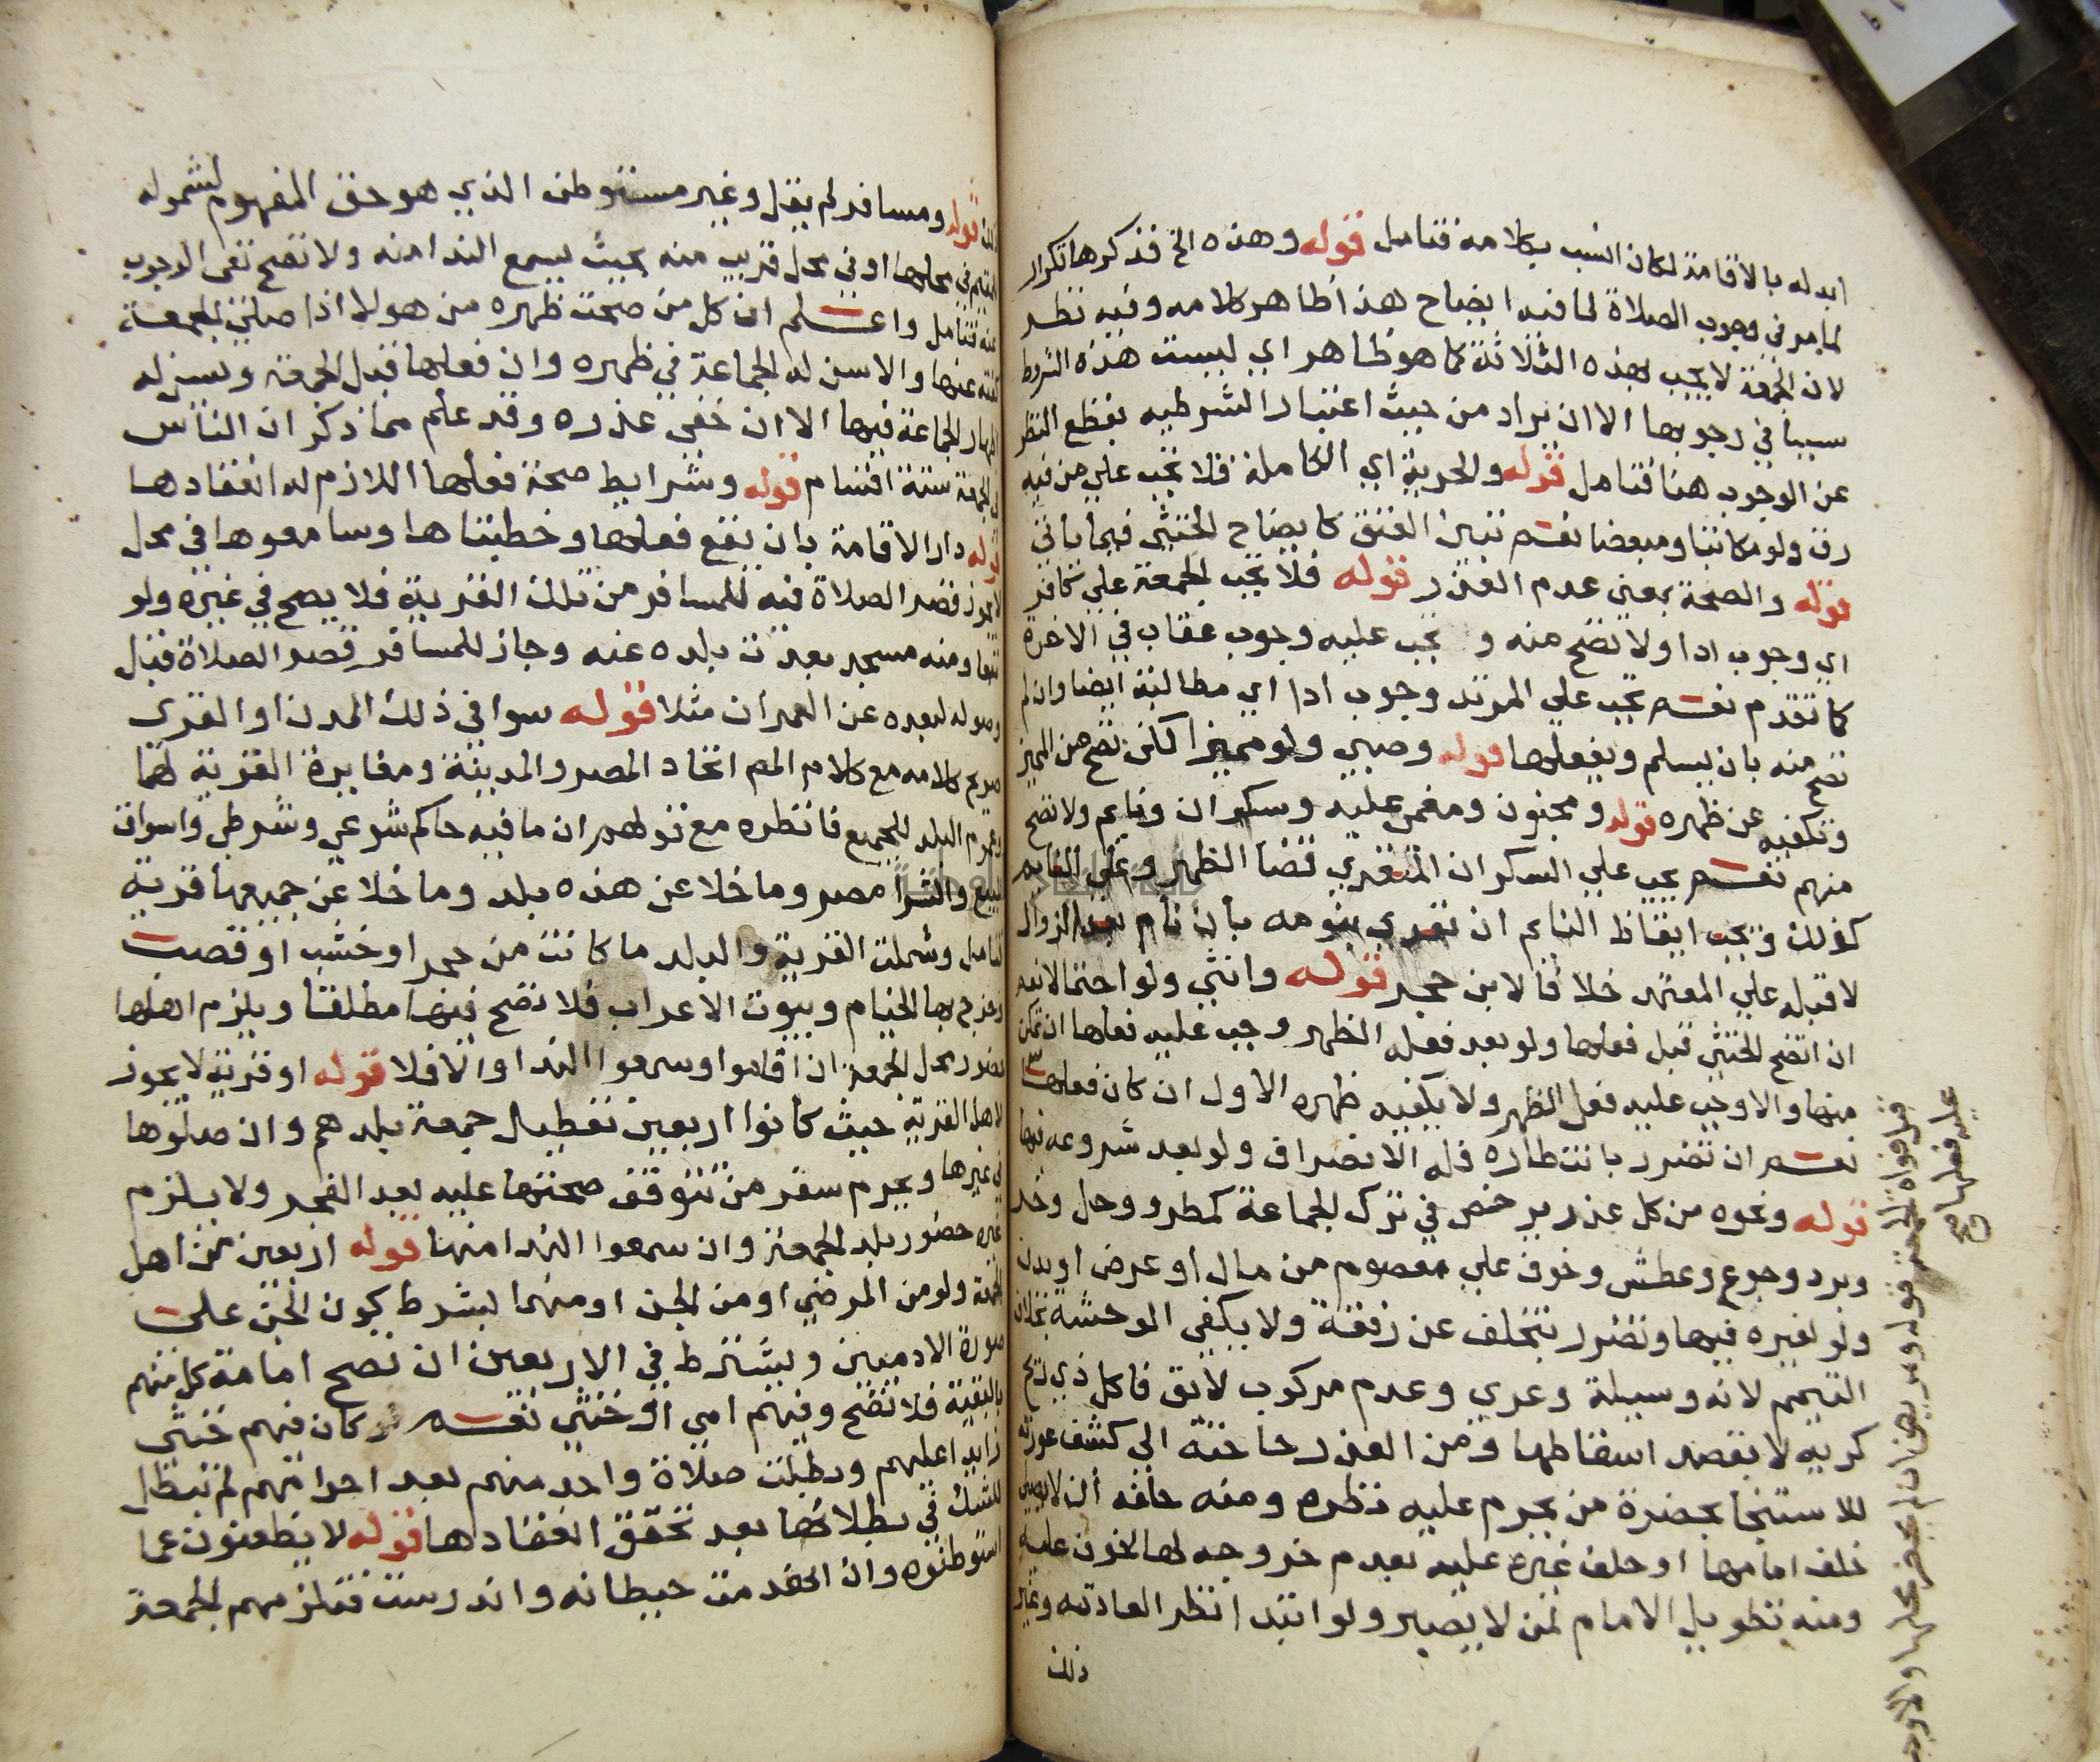 ابدله بالاقامة لكان انسب بكلامه فتامل قوله وهذه الخ فذكرها تكرار
لما مر في وجوب الصلاة لما فيه ايضاح هذا ظاهر كلامه وفيه نظر
لان الجمعة لا تجب بهذه الثلاثة كما هو ظاهر اي ليست هذه الشروط
سببا في وجوبها الا ان يراد من حيث اعتبار الشرطيه بقطع النظر
عن الوجوب هنا فتامل قوله والحرية اي الكاملة فلا تجب علي من فيه
رق ولو مكاتبا ومبعضا نعم تبين العتق كايضاح الخنثي فيما ياتي
قوله والصحة بمعني عدم العذر قوله فلا تجب الجمعة علي كافر
اي وجوب ادا ولا تصح منه و تجب عليه وجوب عقاب في الاخرة
كما تقدم نعم تجب علي المرتد وجوب ادا اي مطالبة ايضا وان لم
تصح منه بان يسلم ويفعلها قوله وصبي ولو مميزا لكن تصح من المميز
وتكفيه عن ظهره قوله ومجنون ومغمي عليه وسكران ونايم ولا تصح
منهم نعم يجب علي السكران المتعدي قضا الظهر وعلي النايم
كذلك ويجب ايقاظ النايم ان تعدي بنومه بان نام بعد الزوال
لا قبله علي المعتمد خلافا لابن حجر قوله وانثي ولو احتمالا نعم
ان اتضح الخنثي قبل فعلها ولو بعد فعله الظهر وجب عليه فعلها ان تمكن
منها والا وجب عليه فعل الظهر ولا يكفيه ظهره الاول ان كان فعلها
نعم ان تضرر بانتظاره فله الانصراف ولو بعد شروعه فيها
قوله ونحوه من كل عذر يرخص في ترك الجماعة كمطر ووحل وحر
وبرد وجوع وعطش وخوف علي معصوم من مال او عرض او بدن
ولو لغيره فيها وتضرر بتخلف عن رفقة ولا يكفي الوحشه بخلاف
التيمم لانه وسيلة وعري وعدم مركوب لائق فاكل ذي ريح
كريه لا بقصد اسقاطها ومن العذر حاجته الي كشف عورته
للاستنجا بحضرة من يحرم عليه نظره ومنه حلفه ان لا يصلي
خلف امامها او حلف غيره عليه بعدم خروجه لها لخوف عليه
ومنه تطويل الامام لمن لا يصبر ولو ابتدا انظر العادته وغير
ذلك
عليه فعلها صح
قوله ومسافر لم يقل وغير مستوطن الذي هو حق المفهوم لشموله
المقيم في محلها او في محل قريب منه بحيث يسمع الندا منه ولا تصح نفي الوجوب
عنه فتامل واعلم ان كل من صحت ظهره من هولا اذا صلي الجمعة
كفته عنها والا سن له الجماعة في ظهره وان فعلها قبل الجمعة ويسن له
اظهار الجماعة فيها الا ان خفي عذره وقد علم مما ذكر ان الناس
في الجمعة ستة اقسام قوله وشرايط صحة فعلها اللازم له انعقادها
قوله دار الاقامة بان يقع فعلها وخطبتاها وسامعوها في محل
لا يجوز قصر الصلاة فيه للمسافر من تلك القرية فلا يصح في غيره ولو
تبعا ومنه مسجد بعدت بلده عنه وجاز للمسافر قصر الصلاة قبل
وصوله لبعده عن العمران مثلا قوله سوا في ذلك المدن او القري
صريح كلامه مع كلام المص اتحاد المصر والمدينة ومغايرة القرية لهما
وعموم البلد للجميع فانظره مع قولهم ان ما فيه حاكم شرعي وشرطي واسواق
للبيع والشرا مصر وما خلا عن هذه بلد وما خلا عن جميعها قرية
فتامل وشملت القرية والبلد ما كانت من حجر او خشب او قصب
وخرج بها الخيام وبيوت الاعراب فلا تصح فيها مطلقا ويلزم اهلها
حضور محل الجمعة ان اقاموا وسمعوا الندا والا فلا قوله او قرية لا يجوز
لاهل القرية حيث كانوا اربعين تعطيل جمعة بلدهم وان صلوها
في غيرها ويحرم سفر من تتوقف صحتها عليه بعد الفجر ولا يلزم
غيره حضور بلد الجمعة وان سمعوا الندا منها قوله اربعين من اهل
الجمعة ولو من المرضي او من الجن او منهما بشرط كون الجن علي
صورة الادميين ويشترط في الاربعين ان تصح امامة كل منهم
بالبقية فلا تصح وفيهم امي او خنثي نعم لو كان فيهم خنثي
زايد اعليهم وبطلت صلاة واحد منهم بعد احرامهم لم تبطل
للشك في بطلانها بعد تحقق انعقادها قوله لا يظعنون عما
استوطنوه وان انهدمت حيطانه واندرست فتلزمهم الجمعة